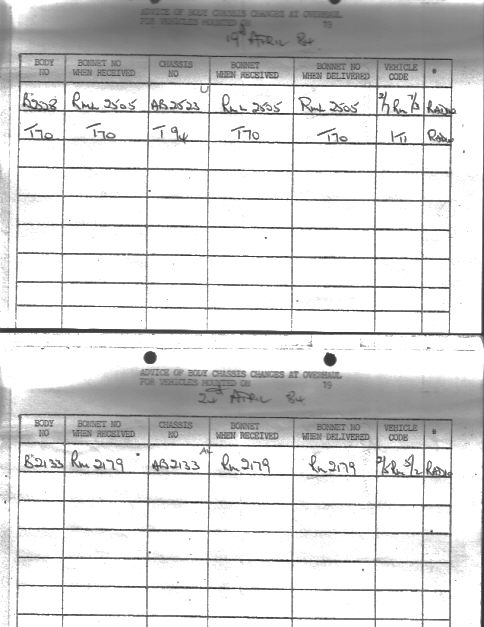 ADVICE OF BODY CHASSIS CHANGES AT OVERHAUL
FOR VEHICLES MOUNTED ON 19
19th APRIL 84
BODY NO BONNET NO WHEN RECEIVED CHASSIS NO BONNET WHEN RECEIVED BONNET NO WHEN DELIVERED VEHICLE CODE *
RML 2505 AB2523 U RML 2505 RML 2505 RADIO
T70 T70 T94 T70 T70 1T1 RADIO
ADVICE OF BODY CHASSIS CHANGES AT OVERHAUL
FOR VEHICLES MOUNTED ON 19
APRIL 84
BODY NO BONNET NO WHEN RECEIVED CHASSIS NO BONNET WHEN RECEIVED BONNET NO WHEN DELIVERED VEHICLE CODE *
B2133 RM 2179 AB2133 RM 2179 RM 2179 RADIO